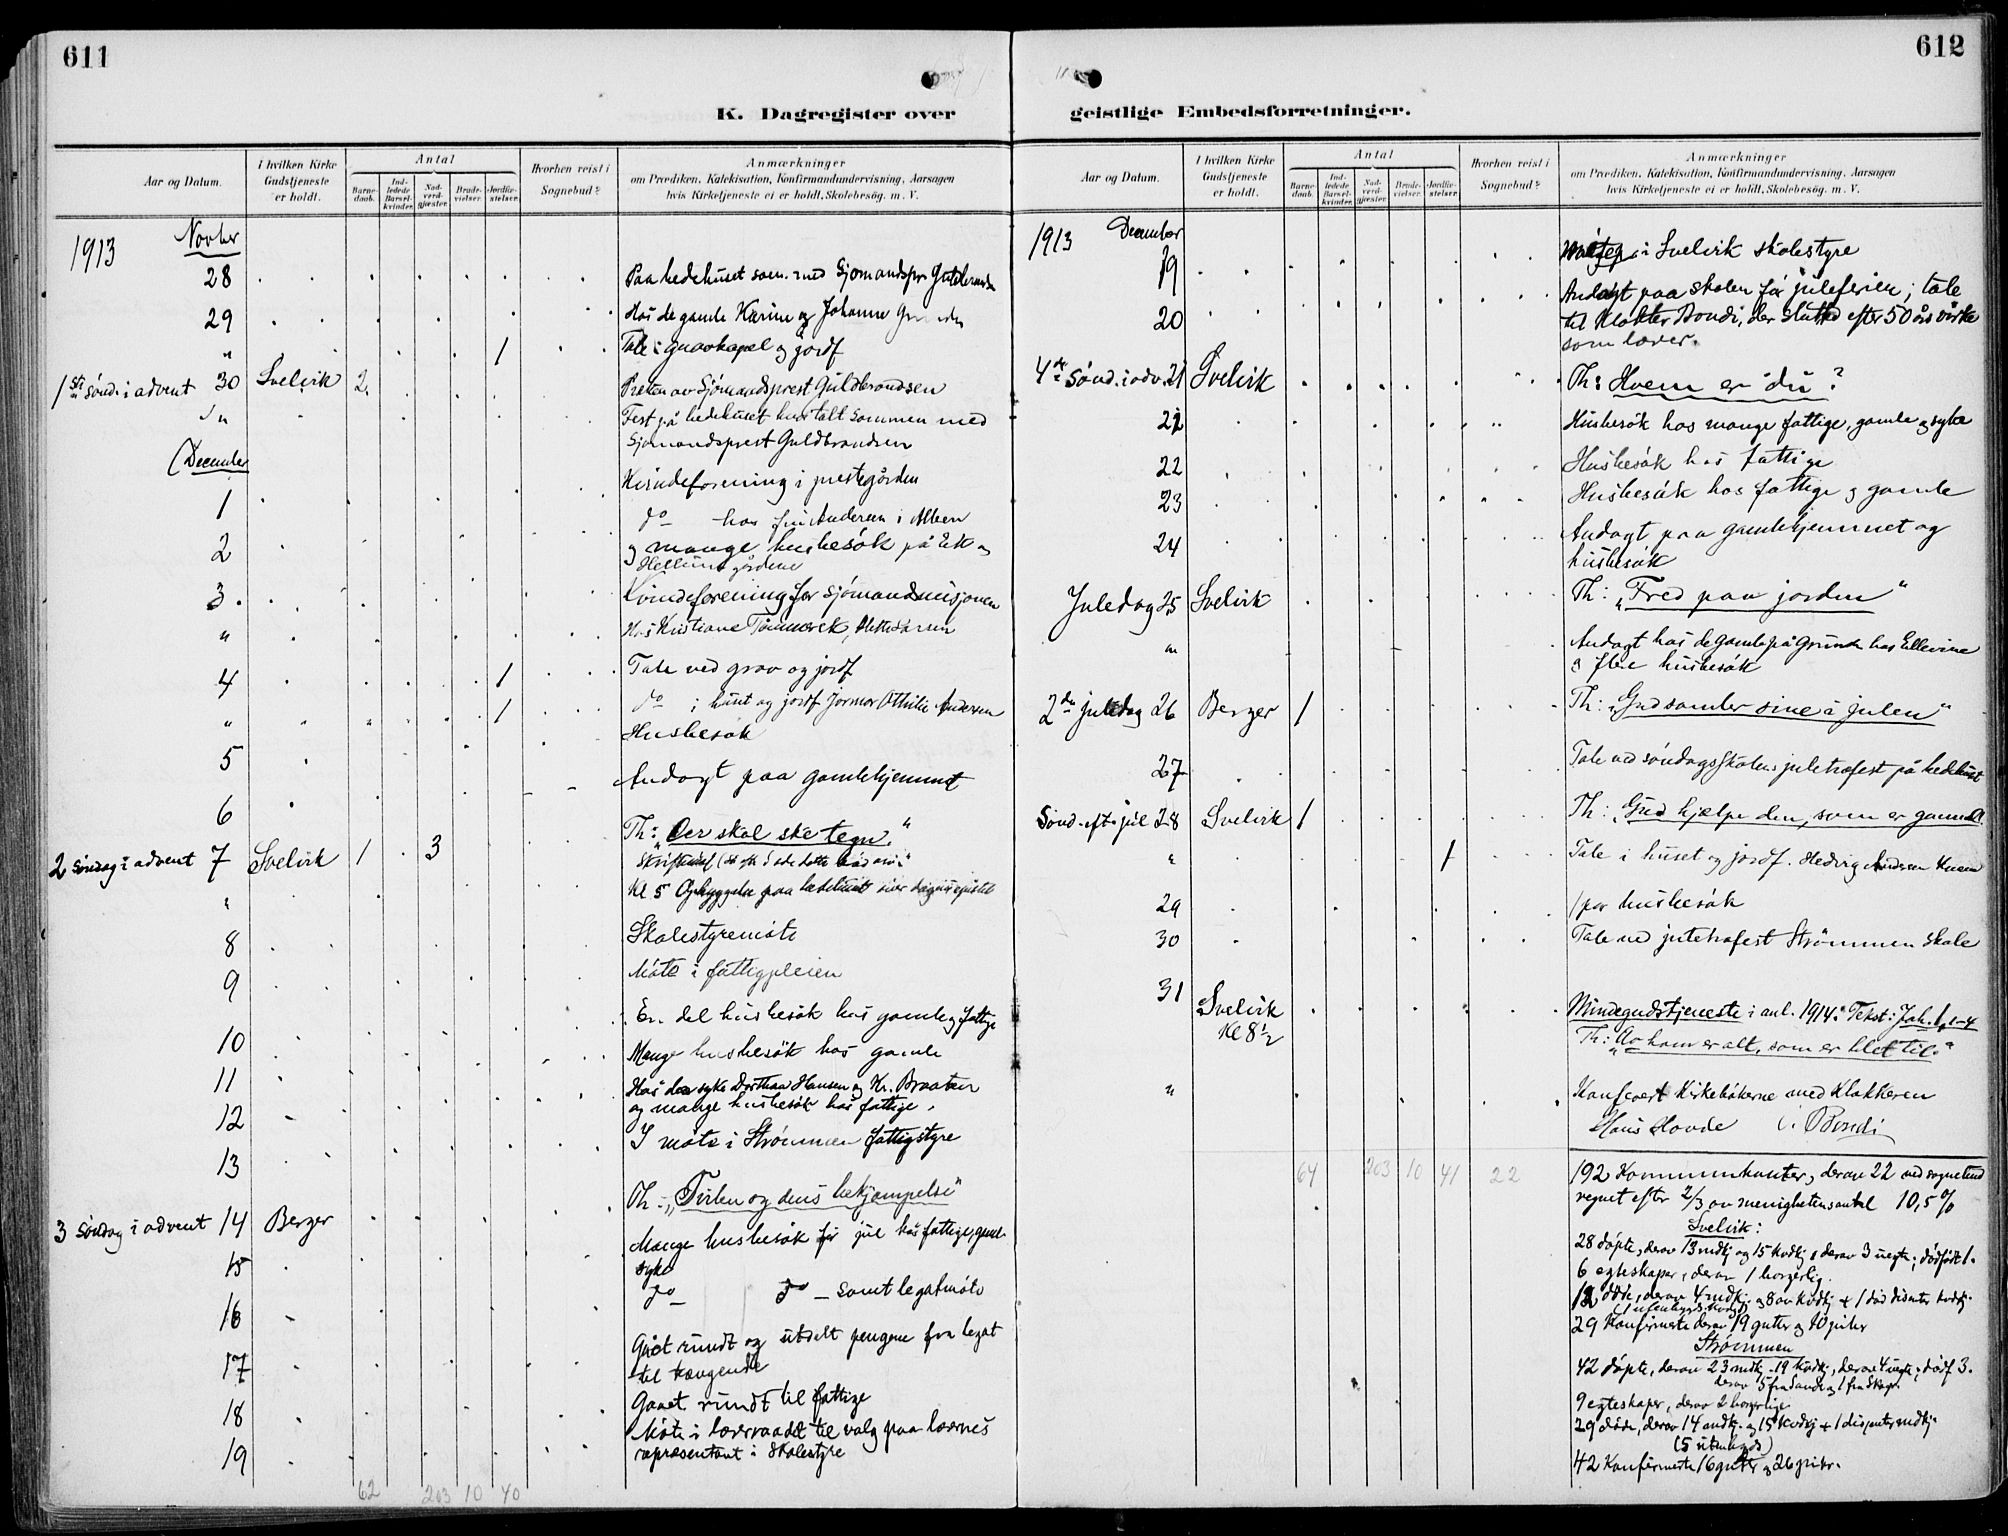 611
K. Dagregister over
Aar og Datum.
I hvilken Kirke Gudstjeneste er holdt.
Antal
Barne-daab.
Ind-ledede Barsel-kvinder.
Nad-verd-gjæster.
Brude-vielser.
Jordfæ-stelser.
Hvorhen reist i Sognebud?
Anmærkninger
om Prædiken, Katekisation, Konfirmandundervisning, Aarsagen
hvis Kirketjeneste ei er holdt, Skolebesøg. m. V.
1913 Novber
28 Paa bedehuset sam. med Sjømandspr Guldbrandsen
29 Hos de gamle Karine og Johanne
" 1 Tale i gravkapel og jordf
1ste sönd. i advent 30 Svelvik 2 Præken av Sjømandsprest Guldbrandsen
" Fest på bedehuset hvor talt sammen med
Sjømandsprest Guldbrandsen
December
1 Kvindeforening i prestegården
2 do hos fru Andersen i
og mange husbesök på Eik og
gårdene
3 Kvindeforening for Sjömandsmisjonen
" Hos Kristiane
4 1 Tale ved grav og jordf
" 1 do i huset og jordf Jormor Othilie Andersen
5 Husbesök
6 Andagt paa gamlehjemmet
2 söndag i advent 7 Svelvik 1 3 Th: "Der skal ske tegn."
" Kl 5 Opbyggelse paa bedehuset over dagens epistel
8 Skolestyremöte
9 Möte i fattigpleien
10 En del husbesök hos gamle og fattige
11 Mange husbesök hos gamle
12 Hos den syke Dorthea Hansen og Kr. Braaten
og mange husbesök hos fattige.
13 I möte i Strömmen fattigstyre
3 söndag i advent 14 Berger Th: "Tvilen og dens bekjæmpelse"
15 Mange husbesök för jul hos fattige, gamle
syke
16 do do samt legatmöte
17 Gåt rundt og utdelt pengene fra legat
til trængende
18 Gaaet rundt til fattige
19 Möte i lærerraadet til valg paa lærernes
repræsentant i Skolestyre
62 203 10 40
612
geistlige Embedsforretninger.
Aar og Datum.
I hvilken Kirke Gudstjeneste er holdt.
Antal
Barne-daab.
Ind-ledede Barsel-kvinder.
Nad-verd-gjæster.
Brude-vielser.
Jordfæ-stelser.
Hvorhen reist i Sognebud?
Anmærkninger
om Prædiken, Katekisation, Konfirmandundervisning, Aarsagen
hvis Kirketjeneste ei er holdt, Skolebesög. m. V.
1913 December
19 i Svelvik skolestyre
20 Andagt paa skolen för juleferien; tale
til Klokker Bondi, der slutted efter 50 års virke
som lærer.
4de Sönd. i adv. 21 Svelvik Th: Hvem er du?
21 Husbesök hos mange fattige, gamle og syke
22 Husbesök hos fattige
23 Husbesök hos fattige og gamle
24 Andagt paa gamlehjemmet og
husbesök
Juledag 25 Svelvik Th: "Fred paa jorden"
" Andagt hos de gamle på Grunden hos Ellevine
og flere husbesök
2den juledag 26 Berger 1 Th: "Gud samler sine i julen"
27 Tale ved söndagsskolens juletræfest på bedehuset
Sönd. eft. jul 28 Svelvik 1 Th: "Gud hjælpe den, som er gammel.
" 1 Tale i huset og jordf. Hedvig Andersen
29 1 par husbesök
30 Tale ved juletræfest Strömmen Skole
31 Svelvik Kl 8½ Mindegudstjeneste i anl. 1914. Tekst: Joh. 1, 1-4
Th: "Av ham er alt, som er blet til."
" Konferert Kirkebökerne med Klokkeren
Hans Hovde Bondi
64 203 10 41 22 192 Kommunikanter, derav 22 ved sognebud
regnet efter 2/3 av menighetens antal 10,5 %
Svelvik:
28 döpte, derav 13 mdkj og 15 kvdkj, derav 3 uegte; dödfödt 1.
6 egteskaper, derav 1 borgerlig.
12 döde, derav 4 mdkj. og 8 av kvdkj + 1 död disenter kvdkj.
29 Konfirmerte derav 19 gutter og 10 piker
Strömmen
42 döpte, derav 23 mdkj. 19 kvdkj, derav 4 uegte; dödf 3.
derav 5 fra Sande og 1 fra Skoger
9 egteskaper, derav 2 borgerlige
29 döde, derav 14 mdkj. og 15 kvdkj + 1 disenter mdkj.
(5 utenbygds)
42 Konfirmerte 16 gutter og 26 piker.